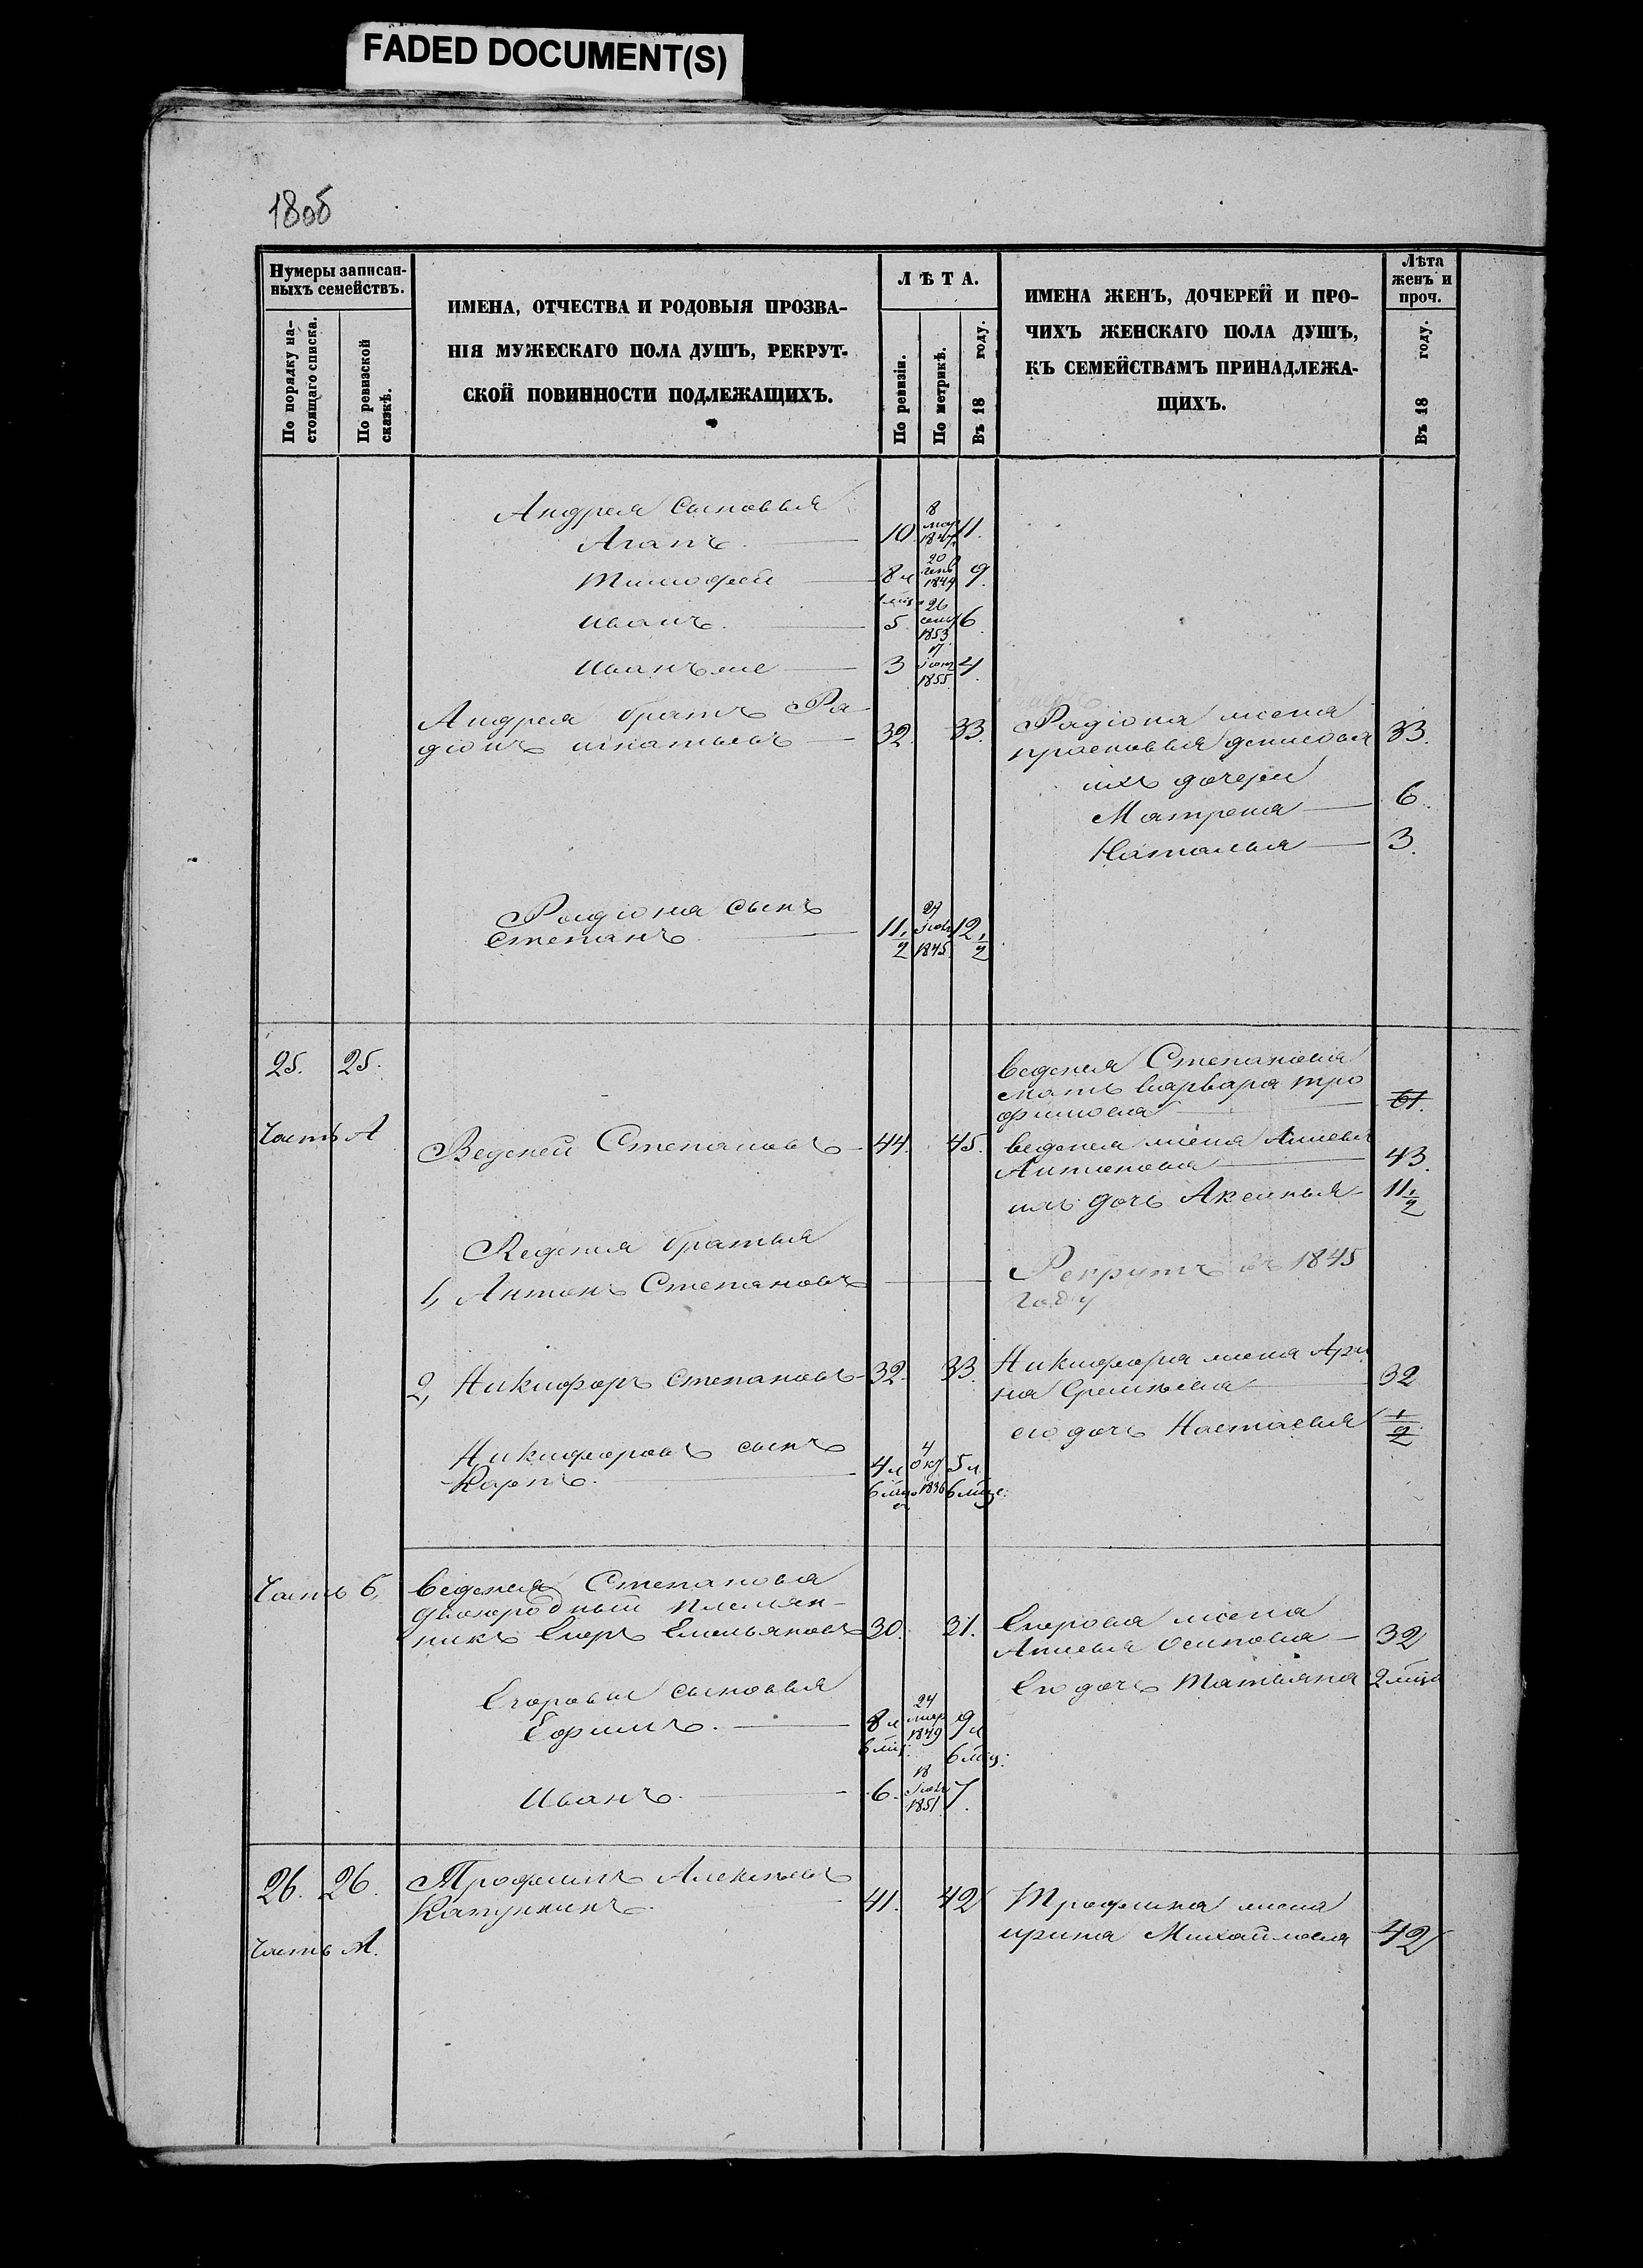 FADED DOCUMENT(S)
180б
Нумеры записан-
ныхъ семействъ.
По порядку на-
стоящаго списка.
По ревизской
сказкѣ.
ИМЕНА, ОТЧЕСТВА И РОДОВЫЯ ПРОЗВА-
НІЯ МУЖЕСКАГО ПОЛА ДУШЪ, РЕКРУТ-
СКОЙ ПОВИННОСТИ ПОДЛЕЖАЩИХЪ.
ЛѢТА.
По ревизіи.
По метрикѣ.
Въ 18 году.
ИМЕНА ЖЕНЪ, ДОЧЕРЕЙ И ПРО-
ЧИХЪ ЖЕНСКАГО ПОЛА ДУШЪ,
КЪ СЕМЕЙСТВАМЪ ПРИНАДЛЕЖА-
ЩИХЪ.
Лѣта
женъ и
проч.
Въ 18 году.
Андрея сыновья
Агапъ 10. 8 мар 1847 11.
Тимофей 8 л 20 1849 9.
Иванъ. 5 26 сент 1853 6
Иванъ же 3 17 1855 4
Андрея братъ Ра
діонъ игнатьевъ 32. 33.
Радіона жена
прасковья денисова 33.
ихъ дочери
Матрена 6.
Наталья 3.
Радіона сынъ
Степанъ 11 1/2 27 1845 12 1/2
25. 25.
веденея Степанова
мать варвара тро
фимова 61.
Часть А
Веденей Степановъ 44. 45.
веденея жена Анисья
Антонова 43.
ихъ дочь Аксинья 11 1/2
Веденея братья
1, Антонъ Степановъ
Рекрутъ въ 1845
году
2, Никифоръ степановъ 32. 33.
Никифора жена Ари
на 32
его дочь Настасья 1/2
Никифоровъ сынъ
Карпъ. 4 л 6 4 окт 5 л 6
Часть б,
веденея Степанова
двоюродный племян-
никъ Егоръ Емельяновъ 30. 31.
Егорова жена
осипова 32
Его дочь Татьяна 2
Егоровы сыновья
Ефимъ. 8 л 6 24 мар 1849 9 л 6
Иванъ. 6. 18 1851 7.
26. 26.
Трофимъ Алексѣевъ
41. 42
Трофима жена
ирина Михайлова 42
Часть А.